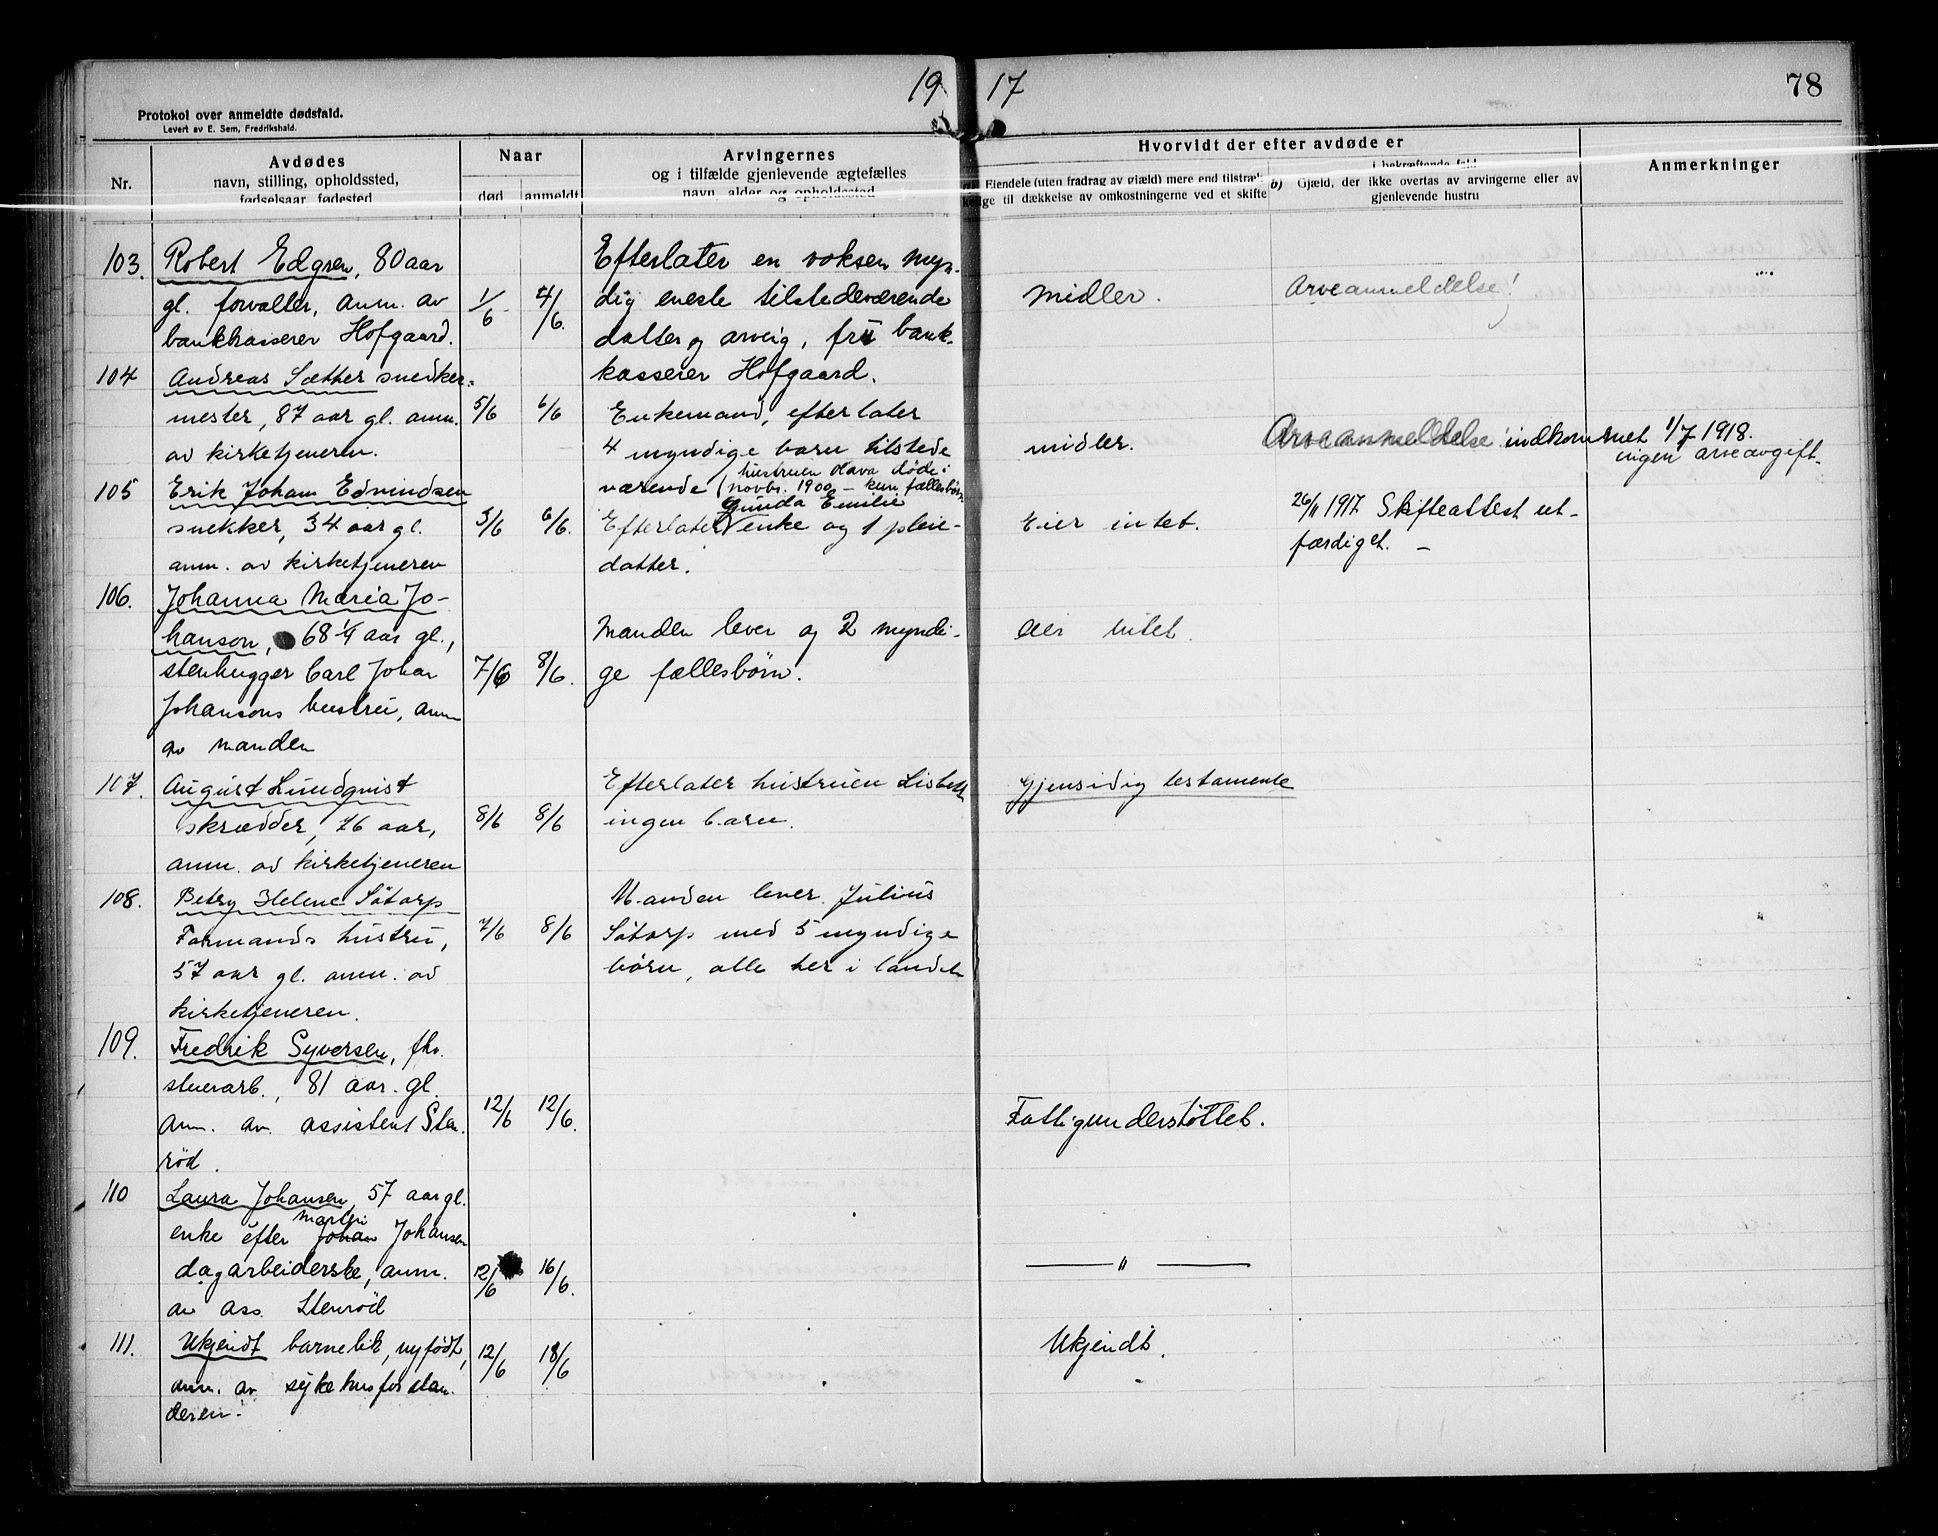 19 17
78
Protokol over anmeldte dødsfald.
Levert av E. Sem, Fredrikshald.
Nr.
Avdødes
navn, stilling, opholdssted,
fødselsaar, fødested
Naar
død
anmeldt
Arvingernes
og i tilfælde gjenlevende ægtefælles
navn, alder og opholdssted
Hvorvidt der efter avdøde er
Eiendele (uten fradrag av gjæld) mere end tilstræk-
kelige til dækkelse av omkostningerne ved et skifte
i bekræftende fald
b) Gjæld, der ikke overtas av arvingerne eller av
gjenlevende hustru
Anmerkninger
103. Robert Edgren, 80 aar
gl. forvalter, anm. av
bankkasserer Hofgaard.
1/6
4/6.
Efterlater en voksen myn-
dig eneste tilstedeværende
datter og arving, fru bank-
kasserer Hofgaard.
Midler.
Arveanmeldelse!
104 Andreas Sæther snedker-
mester, 87 aar gl. anm.
av kirketjeneren.
5/6
6/6
Enkemand, efterlater
4 myndige barn tilstede
værende (hustruen Olava døde i
novbr. 1900 – kun fællesbørn
midler.
Arveanmeldelse indkommet 1/7 1918.
ingen arveavgift.
105 Erik Johan Edvindsen
snekker, 34 aar gl.
anm. av kirketjeneren
3/6
6/6.
Gunda Emilie
Efterlater enke og 1 pleie-
datter.
Eier intet.
26/11 1917. Skifteattest ut-
færdiget. –
106. Johanna Maria Jo-
hanson, 68 1/4 aar gl.,
stenhugger Carl Johan
Johansons hustru, anm
av manden
7/6
8/6.
Manden lever og 2 myndi-
ge fællesbørn.
eier intet.
107. August Lundqvist
skrædder, 76 aar,
anm. av kirketjeneren
8/6
8/6
Efterlater hustruen Lisbeth
ingen barn.
Gjensidig testamente
108. Betzy Helene Såtorp
Formands hustru,
57 aar gl. anm. av
kirketjeneren.
7/6
8/6
Manden lever Julius
Såtorp med 5 myndige
børn, alle her i landet
109. Fredrik Syversen, fhv.
stuerarb., 81 aar. gl.
anm. av assistent Sten-
rød.
12/6
12/6.
Fattigunderstøttet.
110 Laura Johansen, 57 aar gl.
Martin
enke efter Johan Johansen
dagarbeiderske, anm.
av ass. Stenrød
12/6
16/6.
— " —
111. Ukjendt barnelik, nyfødt,
anm. av sykehusforstan-
deren.
12/6
18/6
Ukjendt.